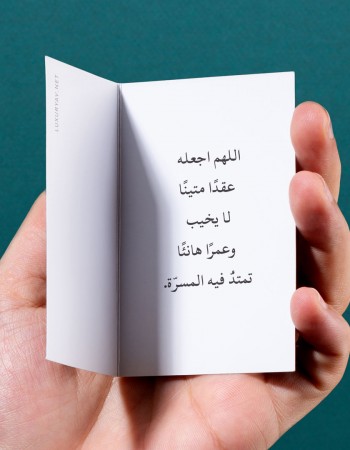 اللهم اجعله
عقدًا متينًا
لا يخيب
وعمرًا هانئًا
تمتدُ فيه المسرّة.